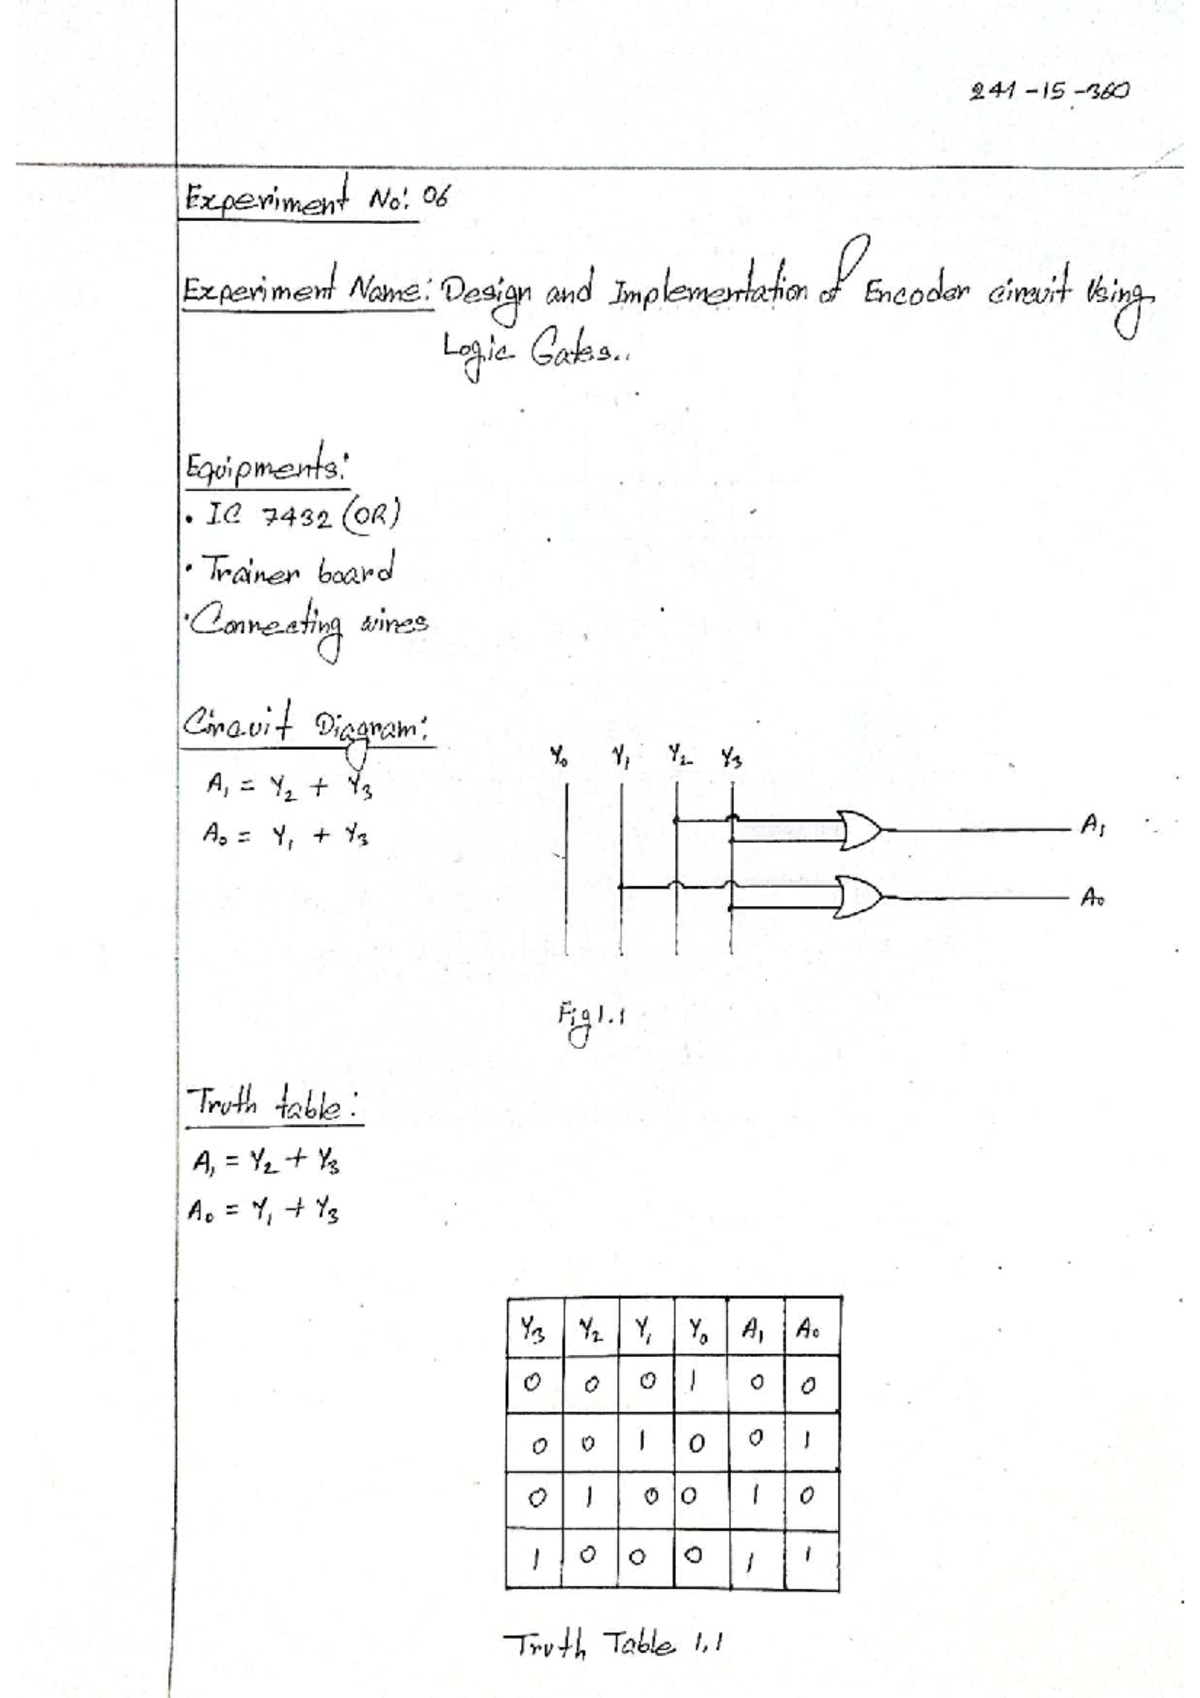 241-15-360
Experiment No: 06
Experiment Name: Design and Implementation of Encoder circuit Using
Logic Gates..
Equipments:
• IC 7432 (OR)
• Trainer board
• Connecting wires
Circuit Diagram:
A₁ = Y₂ + Y₃
A₀ = Y₁ + Y₃
Y₀ Y₁ Y₂ Y₃
A₁
A₀
Fig 1.1
Truth table:
A₁ = Y₂ + Y₃
A₀ = Y₁ + Y₃
Y₃ Y₂ Y₁ Y₀ A₁ A₀
0 0 0 1 0 0
0 0 1 0 0 1
0 1 0 0 1 0
1 0 0 0 1 1
Truth Table 1.1